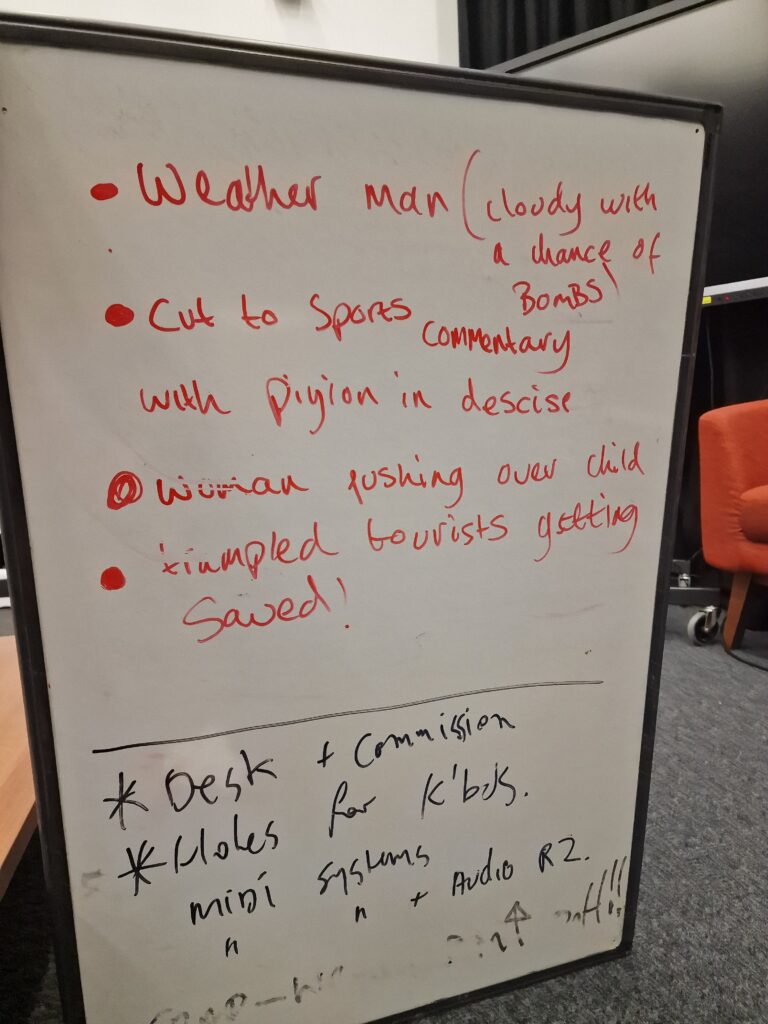 • Weather man (cloudy with
a chance of
BOMBS)
• Cut to Sports commentary
with pigion in descise
• woman pushing over child
• trumpled tourists getting
Saved!
* Desk + Commission
* Holes for K'bds.
MIDI systems
" " + AUDIO R2.